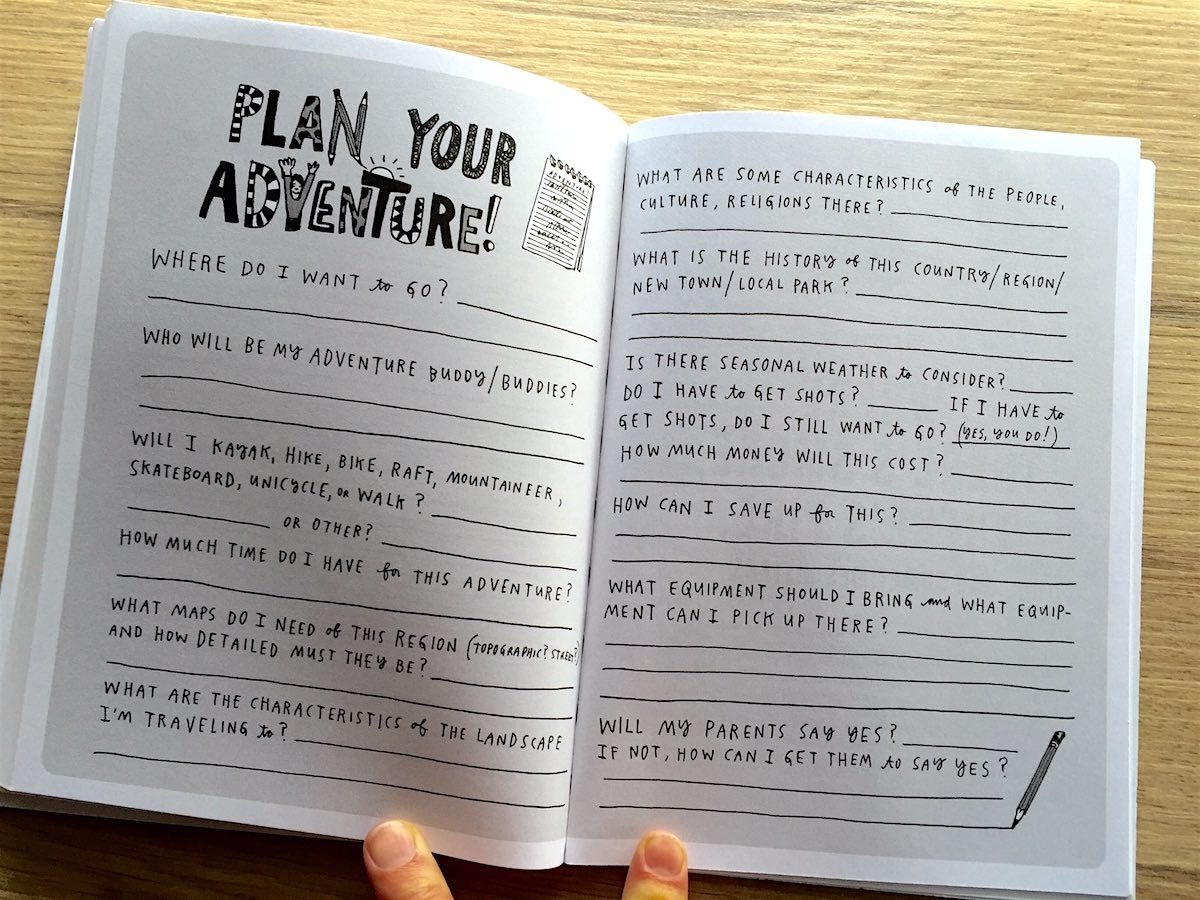 PLAN YOUR
ADVENTURE!
WHERE DO I WANT to GO?
WHO WILL BE MY ADVENTURE BUDDY/BUDDIES?
WILL I KAYAK, HIKE, BIKE, RAFT, MOUNTAINEER,
SKATEBOARD, UNICYCLE, OR WALK?
OR OTHER?
HOW MUCH TIME DO I HAVE for THIS ADVENTURE?
WHAT MAPS DO I NEED of THIS REGION (TOPOGRAPHIC? STREET?)
AND HOW DETAILED MUST THEY BE?
WHAT ARE THE CHARACTERISTICS of THE LANDSCAPE
I'M TRAVELING to?
WHAT ARE SOME CHARACTERISTICS of THE PEOPLE,
CULTURE, RELIGIONS THERE?
WHAT IS THE HISTORY of THIS COUNTRY/REGION/
NEW TOWN/LOCAL PARK?
IS THERE SEASONAL WEATHER to CONSIDER?
DO I HAVE to GET SHOTS? IF I HAVE to
GET SHOTS, DO I STILL WANT to GO? (YES, YOU DO!)
HOW MUCH MONEY WILL THIS COST?
HOW CAN I SAVE UP for THIS?
WHAT EQUIPMENT SHOULD I BRING and WHAT EQUIP-
MENT CAN I PICK UP THERE?
WILL MY PARENTS SAY YES?
IF NOT, HOW CAN I GET THEM to SAY YES?